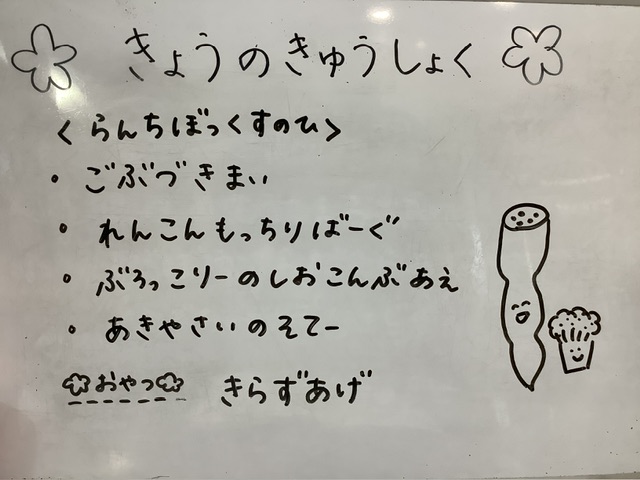 きょうのきゅうしょく
<らんちぼっくすのひ>
・ごぶづきまい
・れんこんもっちりばーぐ
・ぶろっこりーのしおこんぶあえ
・あきやさいのそてー
おやつ きらずあげ